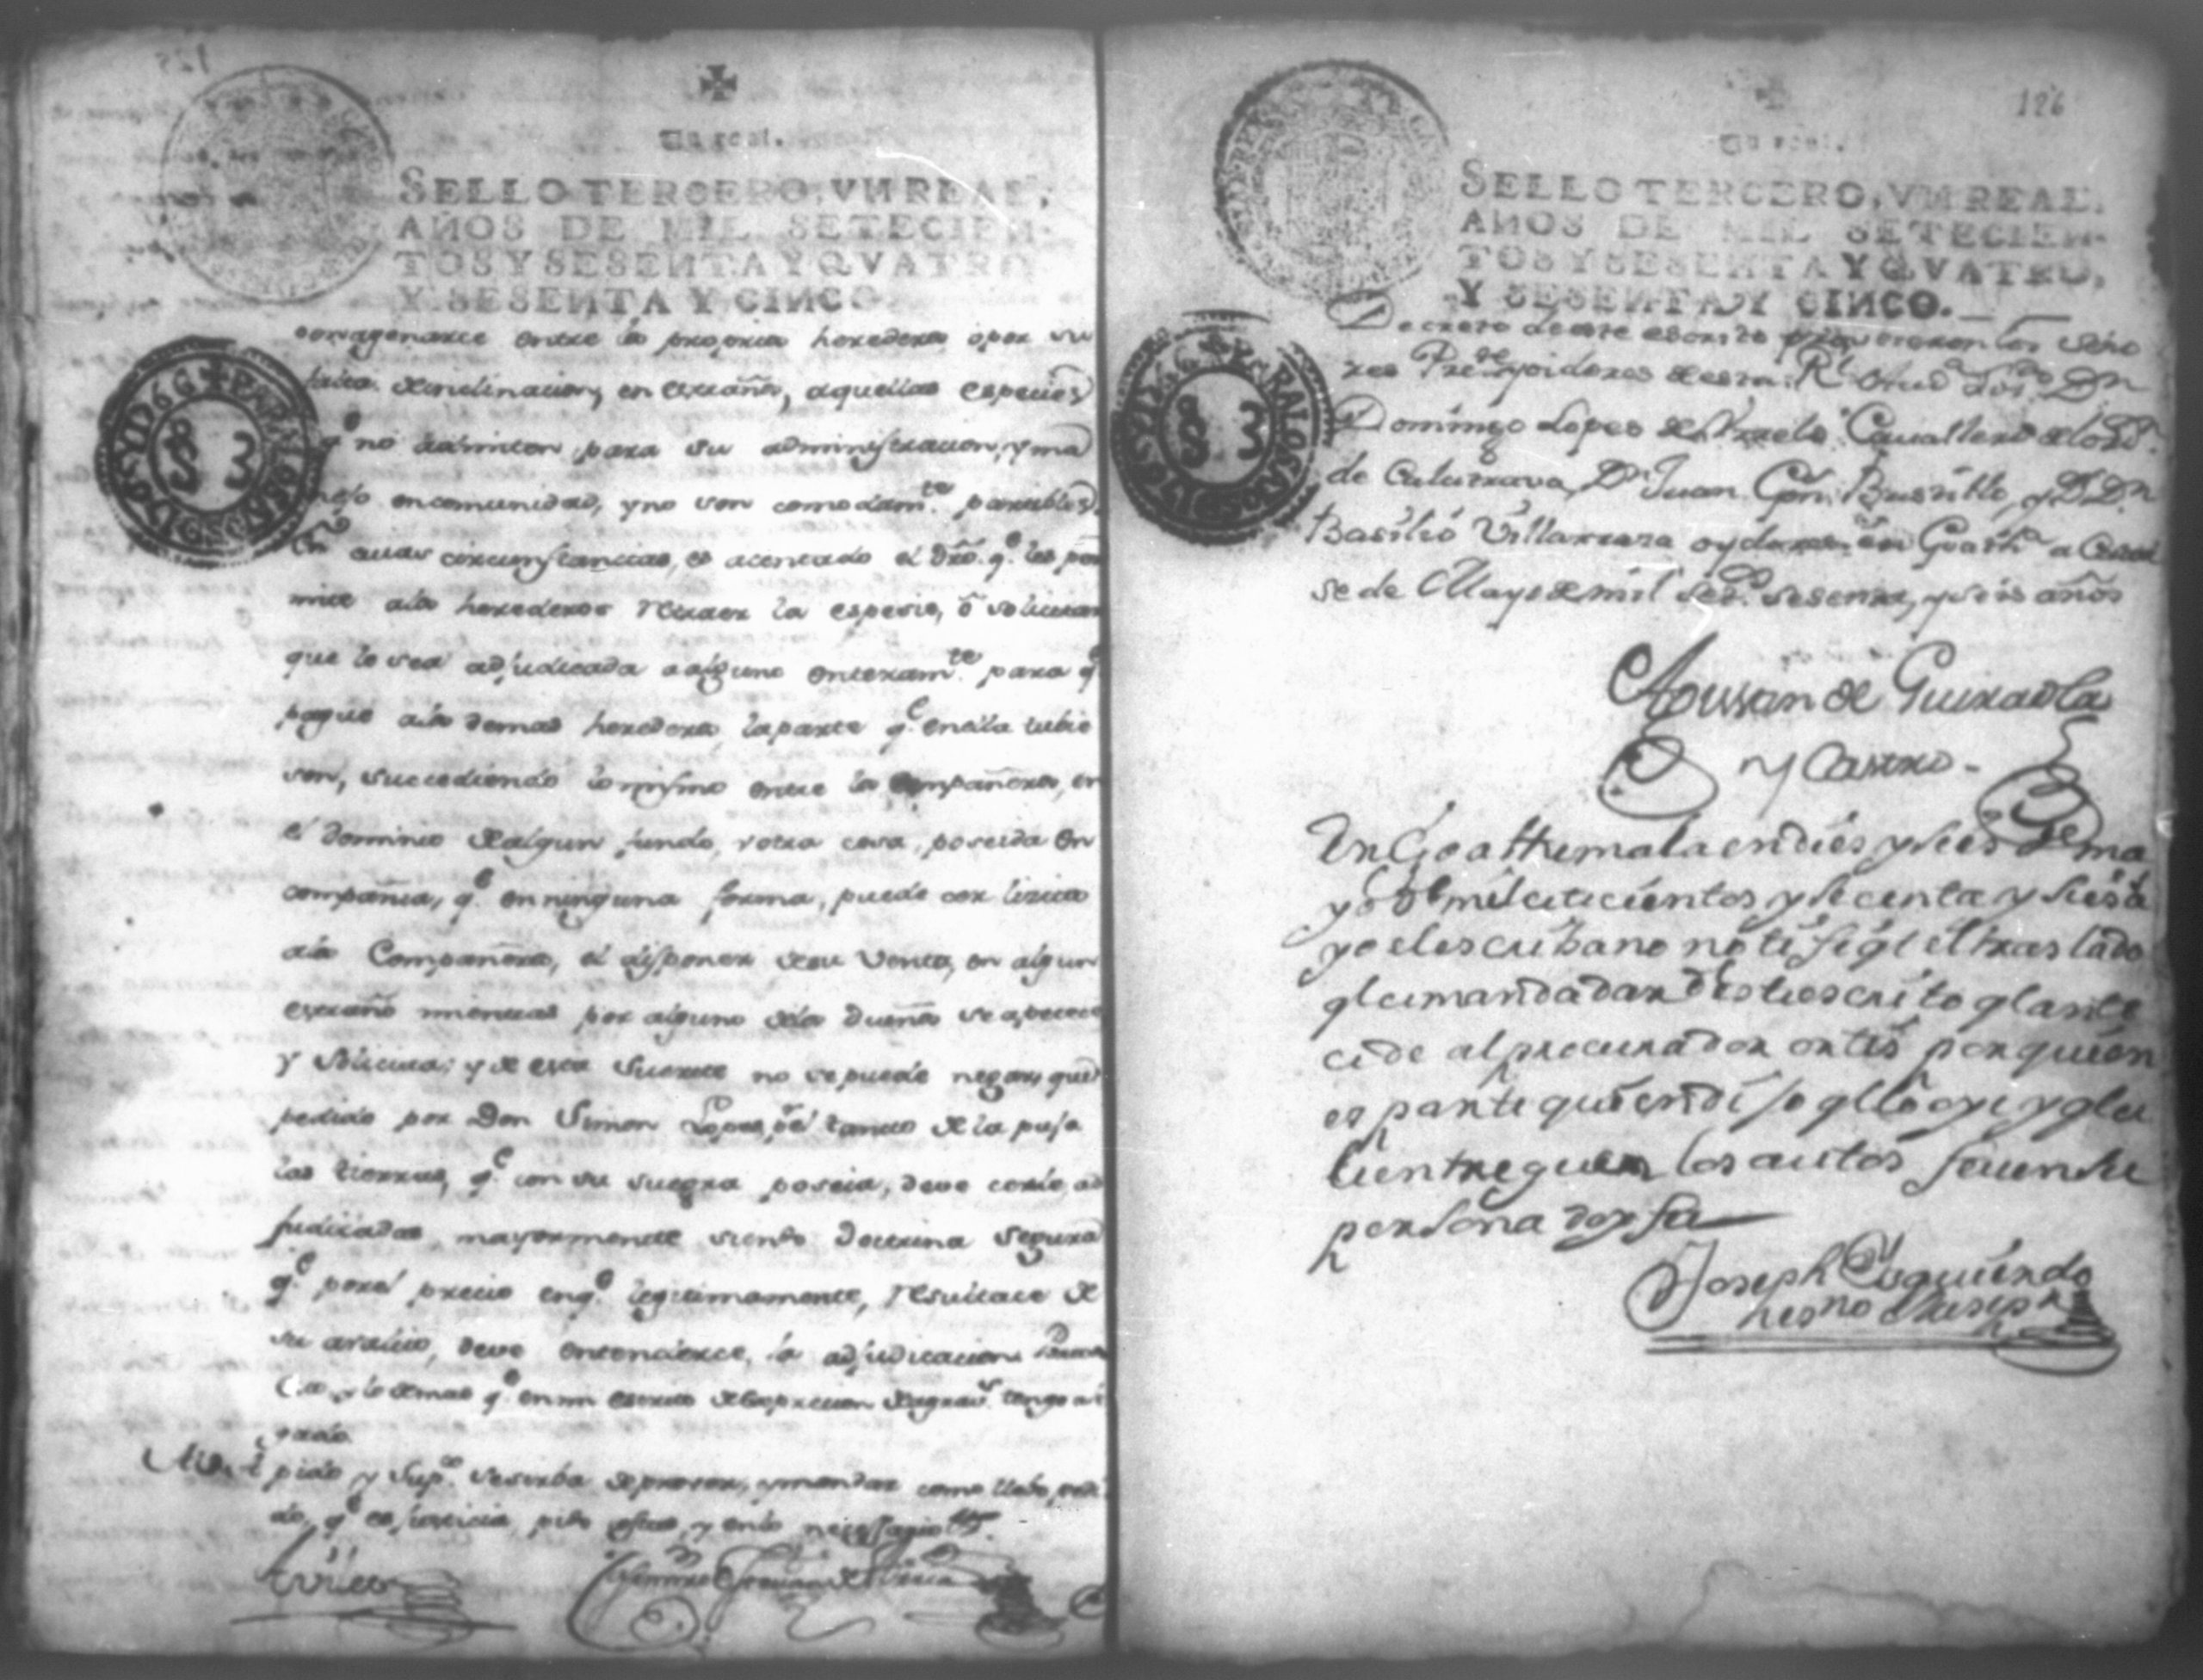 Un real.
SELLO TERCERO, VN REAL,
AÑOS DE MIL SETECIEN-
TOS Y SESENTA Y QVATRO,
Y SESENTA Y CINCO.
enagenarce entre los propios herederos, o por su
falta de inclinacion, en extraños, aquellas especies
q.e no admiten para su administracion, y ma
nejo en comunidad, y no son comodam.te partibles,
En cuias circunstancias, es acentado el dro. q.e les per
mite a los herederos retraer la especie, ô solicitar
que le sea adjudicada a alguno enteram.te para q.e
pague a los demas herederos, la parte q.e en ella tubie
sen, sucediendo lo mismo entre los compañeros, en
el dominio de algun fundo, v otra cosa, poseida en
compañia, q.e en ninguna forma, puede ser licito
a los Compañeros, el disponer de su venta, en algun
extraño mientras por alguno de los dueños se apetece
y solicita; y de esta suerte no se puede negar, que
pedido por Don Simon Lopes, p.r el tanto de la puja
las tierras, q.e con su suegra poseia, deve cerle ad
judicadas, mayormente siendo doctrina segura
q.e por el precio en q.e legitimamente, resultace de
su avaluo, deve entenderce, la adjudicacion
y lo demas q.e en mi escrito de exprecion de agrav.s tengo ale
gado.
pido y sup.co se sirba de proveer, y mandar como llebo pedi
do, q.e es justicia, pido costas, y en lo necessario
126
Un real.
SELLO TERCERO, VN REAL,
AÑOS DE MIL SETECIEN-
TOS Y SESENTA Y QVATRO,
Y SESENTA Y CINCO.
Decreto de este escrito proveyeron los Seño
res Pres.te y oidores de esta R.l Aud.a Dn
Domingo Lopes de Urrelo Cavallero del Ord.n
de Calatrava, Dn Juan Gon. Bustillo, y D. Dn
Basilio Villarrasa oydores en Guath.a a Cator
se de Mayo de mil set.s sesenta, y seis años
Agustin de Guiraola
y Castro.
En Goathemala en dies y seis de ma
yo de mil cetecientos y secenta y seis a
yo el escribano notifiqe el traslado
qe ce manda dar deste escrito qe ante
cede al procurador ortis por quien
es parte quien dijo qe lo oye y qe ce
le entreguen los autos fue en su
persona doy fe
Joseph Esquierdo